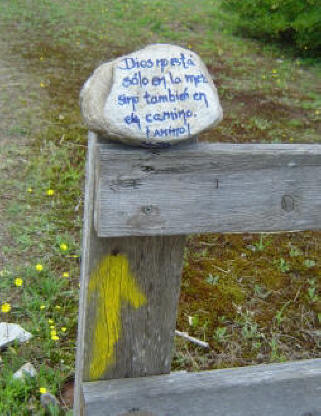 Dios no está
sólo en la meta
sino también en
el camino.
¡ANIMO!